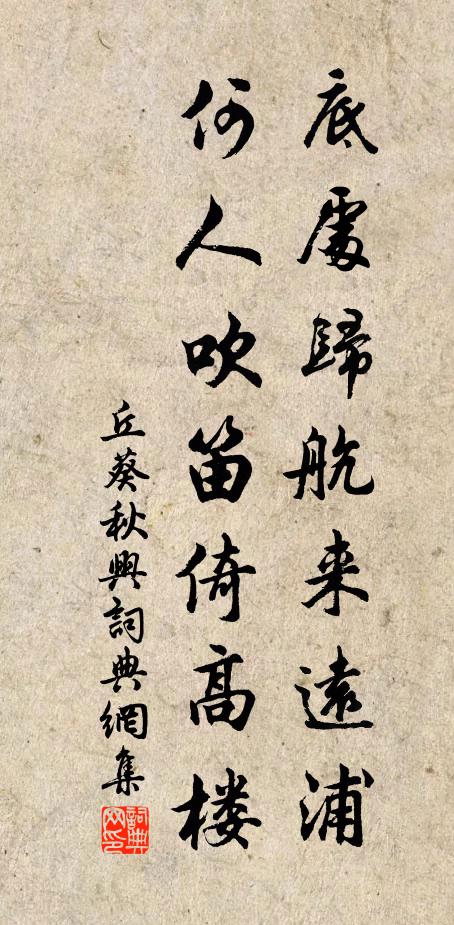 底處歸航来遠浦
何人吹笛倚高楼
丘葵秋興詞典網集
詞典网印